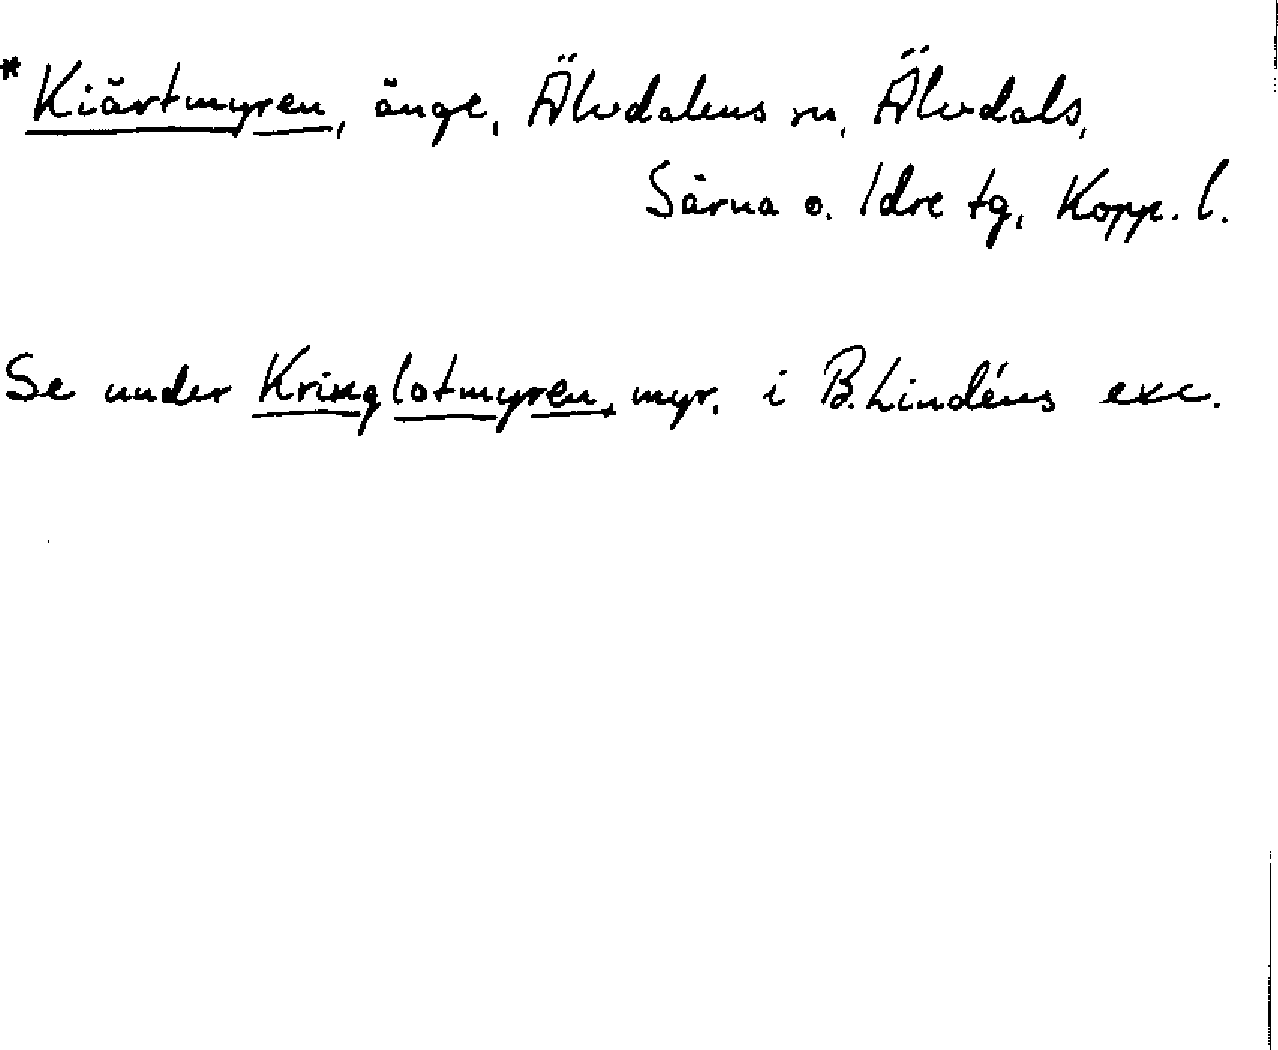 *Kiärtmyren, änge, Älvdalens sn, Älvdals,
Särna o. Idre tg, Kopp. l.
Se under Kringlotmyren, myr, i B. Lindéns exc.